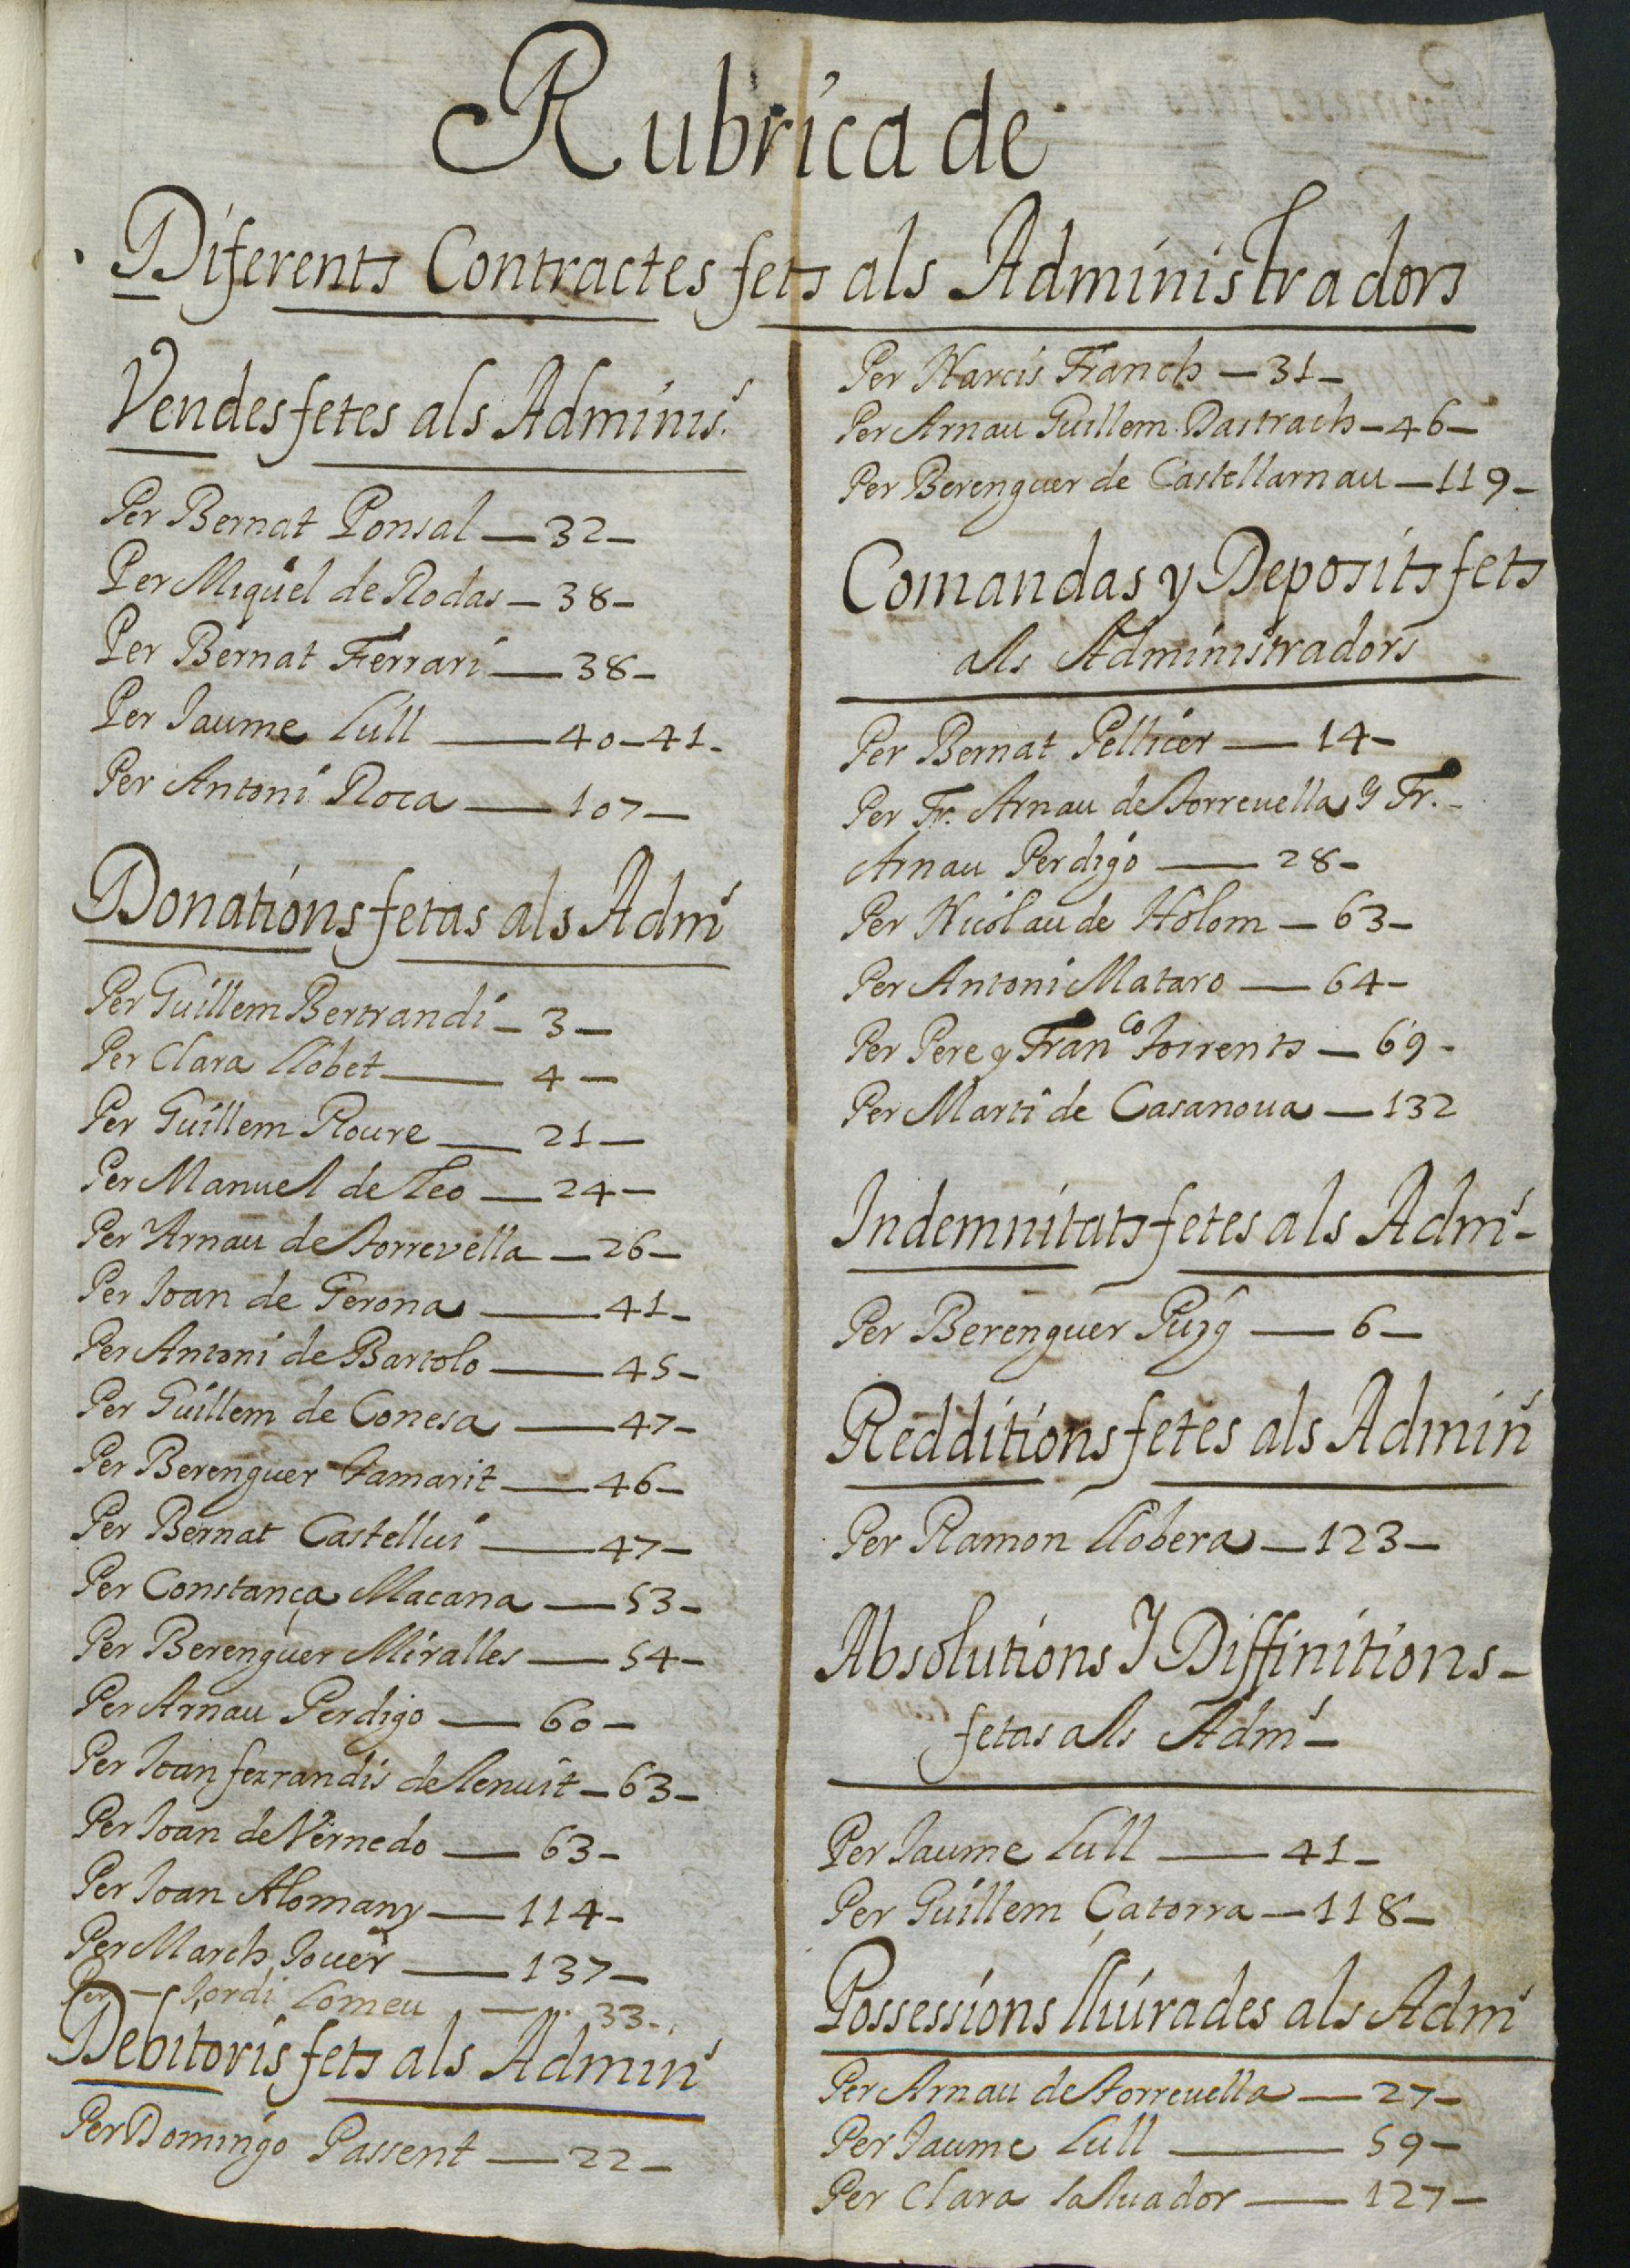 Rubrica de
Diferents Contractes fets als Administradors
Vendes fetes als Adminis.
Per Bernat Ponsal — 32 —
Per Miquel de Rodas — 38 —
Per Bernat Ferrari — 38 —
Per Jaume Lull — 40 — 41 -
Per Antoni Roca — 107 —
Donations fetas als Adm
Per Guillem Bertrandi — 3 —
Per Clara Llobet — 4 —
Per Guillem Roure — 21 —
Per Manuel de Leo — 24 —
Per Arnau de Torrevella — 26 —
Per Joan de Gerona — 41 -
Per Antoni de Bartolo — 45 -
Per Guillem de Conesa — 47 -
Per Berenguer Tamarit — 46 —
Per Bernat Castellui — 47 —
Per Constança Macana — 53 -
Per Berenguer Miralles — 54 -
Per Arnau Perdigo — 60 —
Per Joan ferrandis de — 63 -
Per Joan de Vernedo — 63 -
Per Joan Alomany — 114 -
Per March Jover — 137 —
Per — Jordi Lomeu — 33 -
Debitoris fets als Admin
Per Domingo Passent — 22 —
Per Narcis Franch — 31 —
Per Arnau Guillem Dastrach — 46 —
Per Berenguer de Castellarnau — 119 -
Comandas y Deposits fets
als Administradors
Per Bernat Pellicer — 14 —
Per Fr. Arnau de Torreuella y Fr. -
Arnau Perdigo — 28 -
Per Nicolau de Holom — 63 —
Per Antoni Mataro — 64 -
Per Pere y Franco Torrents — 69 -
Per Marti de Casanoua — 132
Indemnitats fetes als Adm -
Per Berenguer Puyg — 6 —
Redditions fetes als Admin
Per Ramon Llobera — 123 —
Absolutions Y Diffinitions —
fetas als Adm —
Per Jaume Lull — 41 —
Per Guillem Çatorra — 118 —
Possessions lliurades als Adm
Per Arnau de Torreuella — 27 —
Per Jaume Lull — 59 —
Per Clara Saluador — 127 —